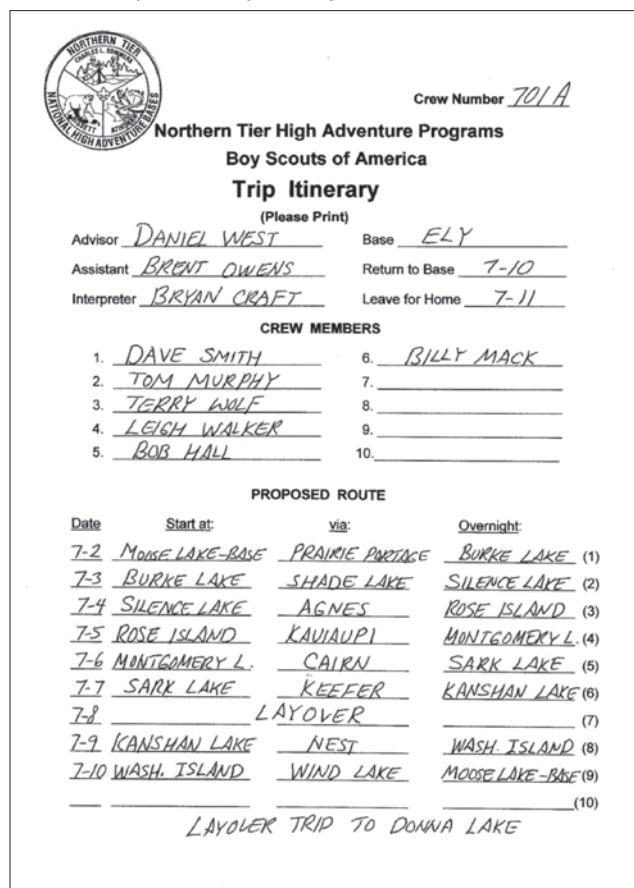 NORTHERN TIER
CHARLES L. SOMMERS
NATIONAL HIGH ADVENTURE BASES
Crew Number 701A
Northern Tier High Adventure Programs
Boy Scouts of America
Trip Itinerary
(Please Print)
Advisor DANIEL WEST Base ELY
Assistant BRENT OWENS Return to Base 7-10
Interpreter BRYAN CRAFT Leave for Home 7-11
CREW MEMBERS
1. DAVE SMITH 6. BILLY MACK
2. TOM MURPHY 7.
3. TERRY WOLF 8.
4. LEIGH WALKER 9.
5. BOB HALL 10.
PROPOSED ROUTE
Date Start at: via: Overnight:
7-2 MOOSE LAKE-BASE PRAIRIE PORTAGE BURKE LAKE (1)
7-3 BURKE LAKE SHADE LAKE SILENCE LAKE (2)
7-4 SILENCE LAKE AGNES ROSE ISLAND (3)
7-5 ROSE ISLAND KAUIAUPI MONTGOMERY L. (4)
7-6 MONTGOMERY L. CAIRN SARK LAKE (5)
7-7 SARK LAKE KEEFER KANSHAN LAKE (6)
7-8 LAYOVER (7)
7-9 KANSHAN LAKE NEST WASH. ISLAND (8)
7-10 WASH. ISLAND WIND LAKE MOOSE LAKE-BASE (9)
(10)
LAYOVER TRIP TO DONNA LAKE